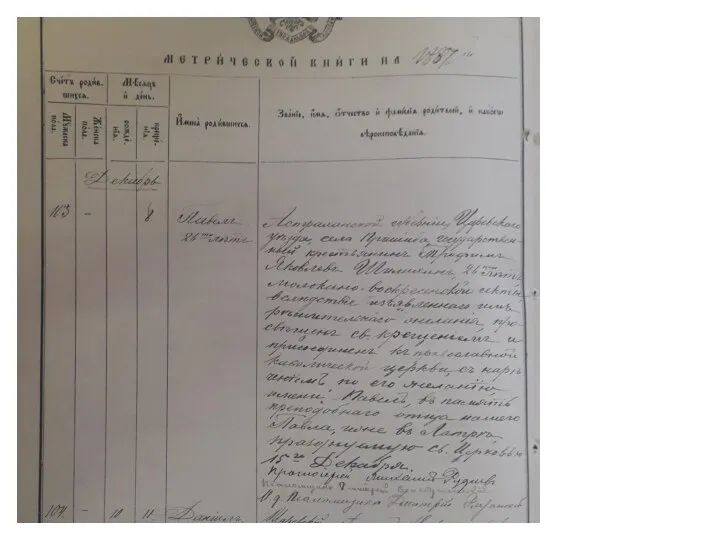 МЕТРИЧЕСКОЙ КНИГИ НА 1887 годъ
Счетъ родив-
шихся.
Мѣсяцъ
и день.
Имена родившихся.
Званіе, имя, отчество и фамилія родителей, и какого
вѣроисповѣданія.
Мужеска
пола.
Женска
пола.
рожде-
нія.
креще-
нія.
Декабрь
103 – 8 Павелъ
26ти лѣтъ
Астраханской губерніи, Царевскаго
уѣзда, села Пришиба, государствен-
ный крестьянинъ Трофимъ
Яковлевъ Шишкинъ, 26ти лѣтъ
молокано-воскресенской секты,
вслѣдствіе изъявленнаго имъ
рѣшительнаго желанія, про-
свѣщенъ св. крещеніемъ и
присоединенъ къ православной
каѳолической церкви, съ наре-
ченіемъ по его желанію
имени Павелъ, въ память
преподобнаго отца нашего
Павла, иже въ Латрѣ,
празднуемую св. Церковью
15го Декабря.
Протоіерей Михаилъ Рудневъ
И. д. Псаломщика
104 – 10 11 Даніилъ